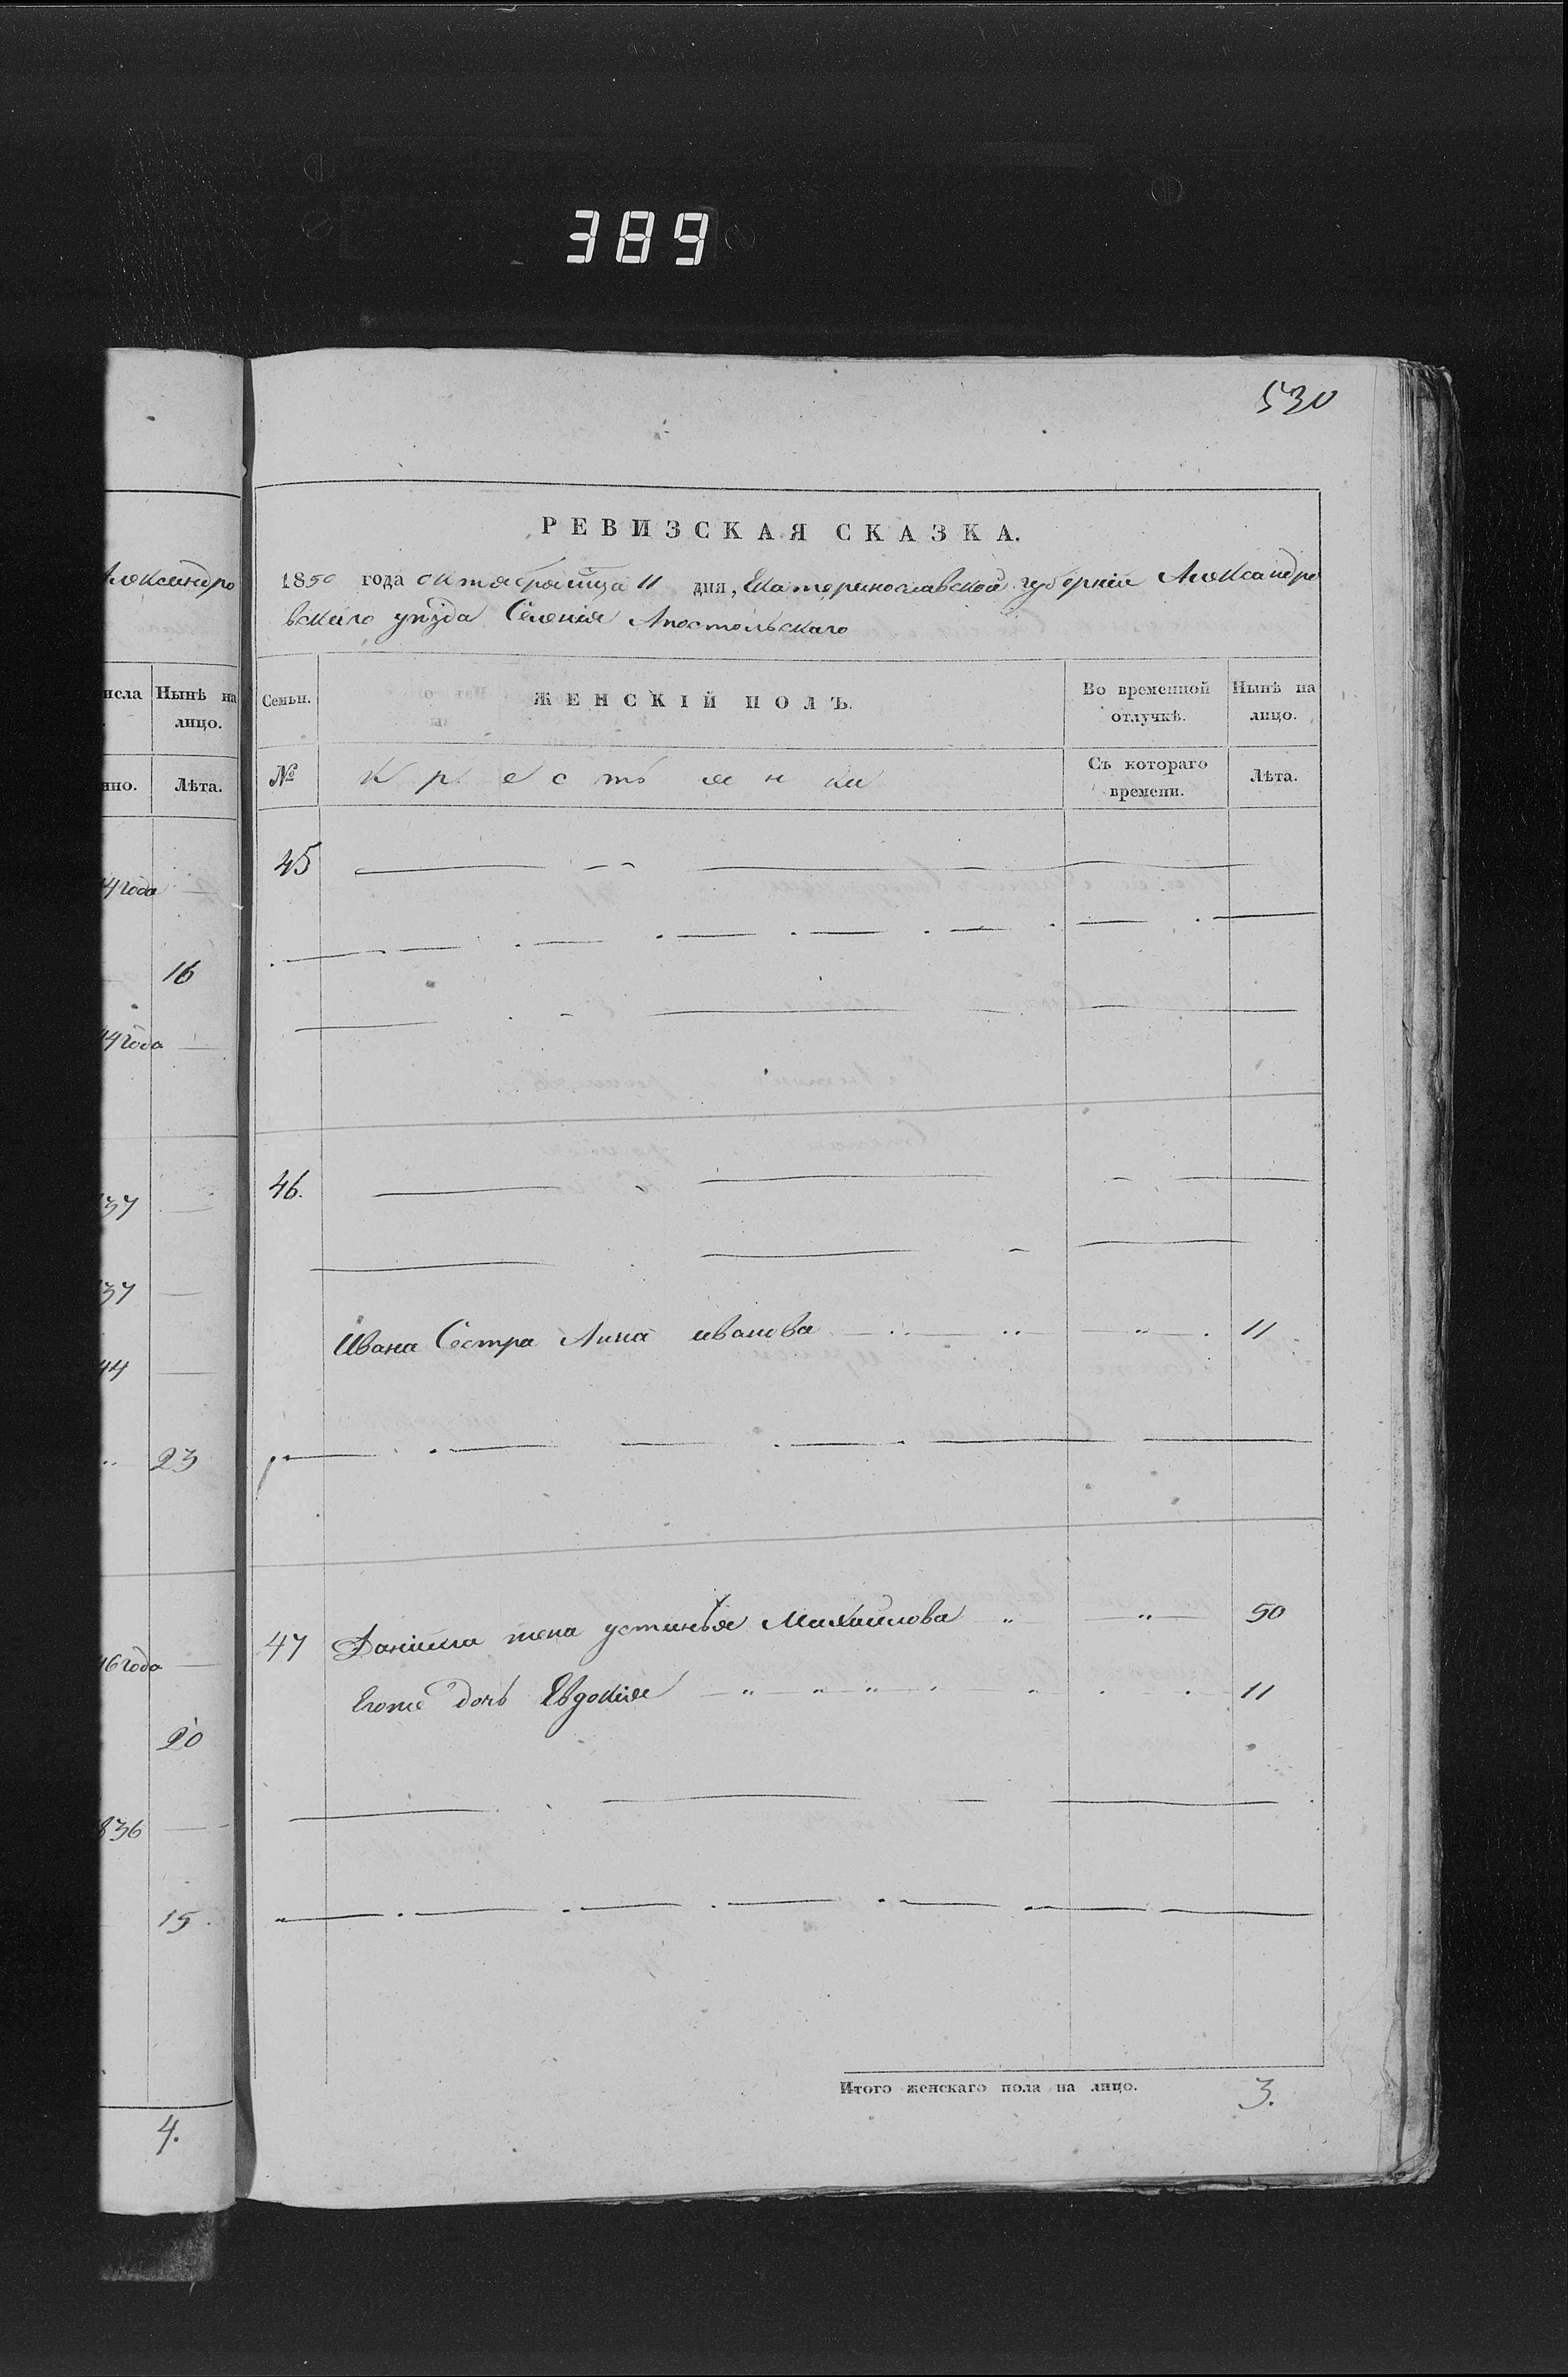 389
530
РЕВИЗСКАЯ СКАЗКА.
Александро
1850 года октября мца 11 дня, Екатеринославской губернiи Александро
вскаго уѣзда Селенiя Апостольскаго
исла
Нынѣ на
лицо.
Семьи.
ЖЕНСКІЙ ПОЛЪ.
Во временной
отлучкѣ.
Нынѣ на
лицо.
нно.
Лѣта.
№
Крестьянки
Съ котораго
времени.
Лѣта.
45
4 года
16
44 года
46.
37
37
Ивана Сестра Анна иванова 11
44
23
47 Данiила жена устинья Михаилова 50
46 года
Егоже дочь Евдокiя 11
20
836
15.
Итого женскаго пола на лицо. 3.
4.